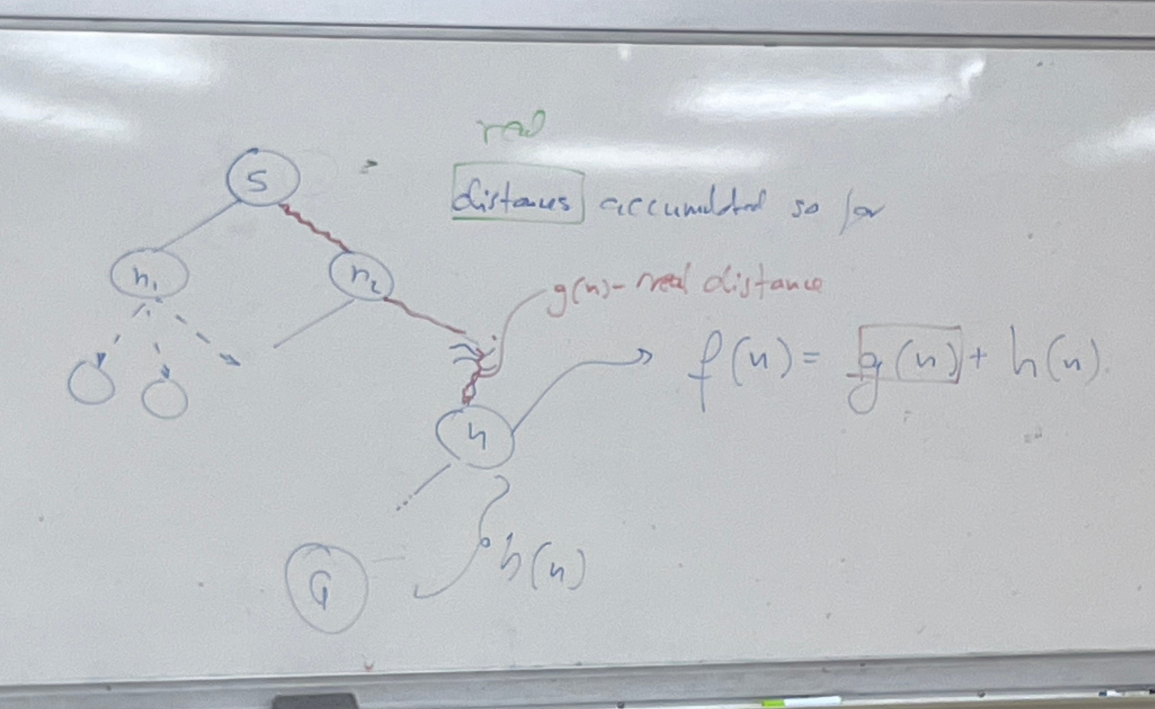 real
S
distances accumulated so far
n₁
n₂
g(n) - real distance
f(n) = g(n) + h(n).
n
h(n)
G